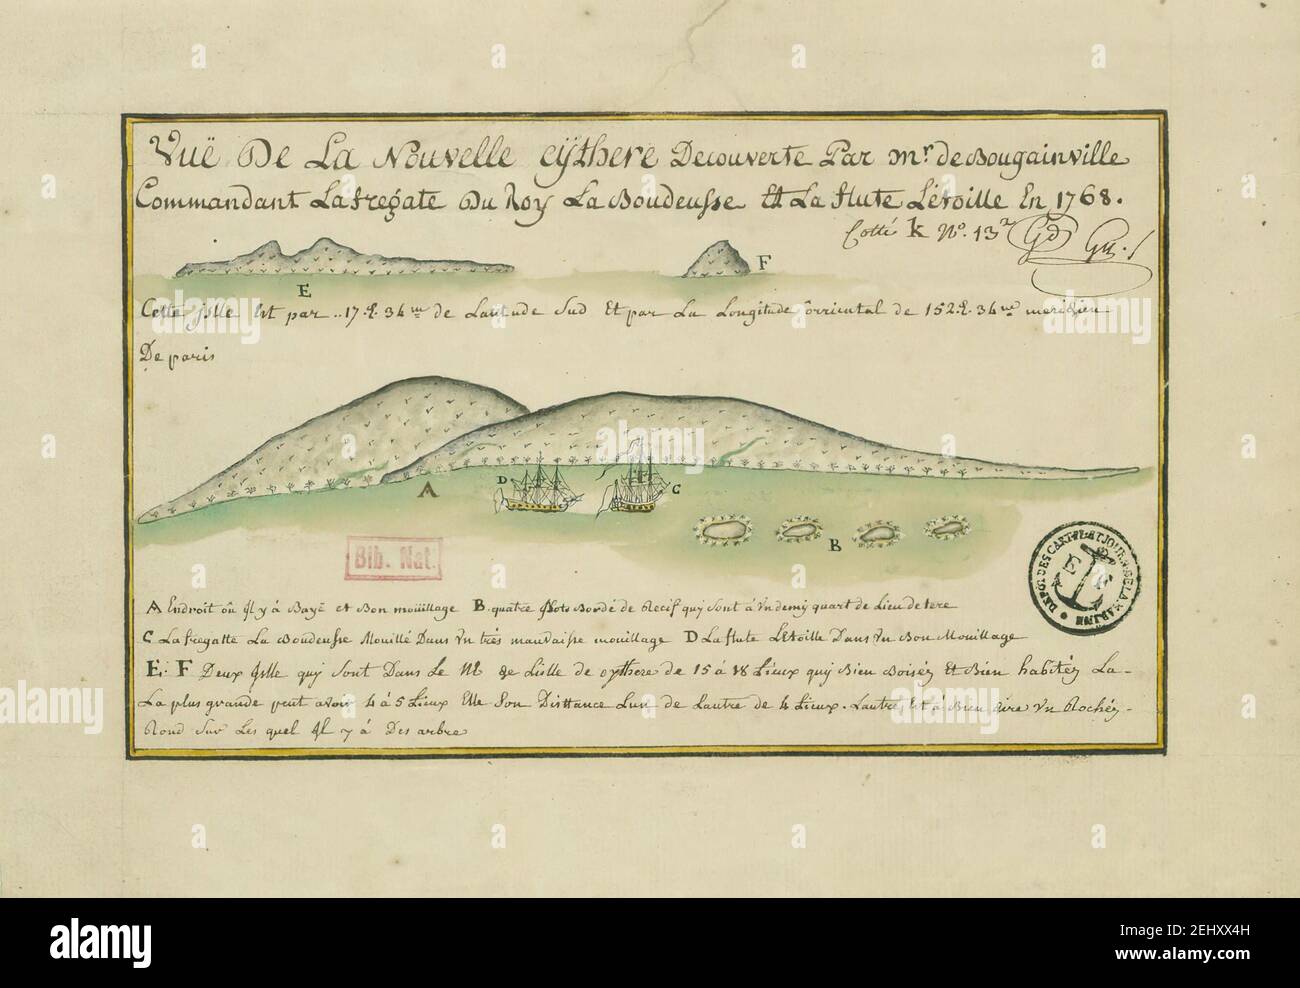 Vuë De La Nouvelle cÿthere Decouverte Par mr. de Bougainville
Commandant La fregate Du Roy La Boudeusse Et La flute L'étoille En 1768.
Cotté k No. 13
E
F
Cette jslle Est par .. 17.d. 34m de Latitude Sud Et par La Longitude orriental de 152.d. 34m. meridien
De paris
A
D
C
B
Bib. Nat.
DEPOT DES CARTES ET JOUR. DE LA MARINE
E F
A Endroit oû Jl y â Bayë et Bon moüillage B. quatre jslots Bordé de Recif quj sont â Vn demy quart de Lieu de tere
C La fregatte La Boudeusse Mouillé Dans Vn trés mauvaisse mouillage D La flute L'Etoille Dans Vn Bon Mouillage
E: F Deux Jslle quj sont Dans Le de Lislle de cythere de 15 â 18 Lieux quj Bien Boiséz Et Bien habitéz La-
La plus grande peut avoir 4 â 5 Lieux Elle Son Disttance Lun de Lautre de 4 Lieux. Lautres Est â Bien dire Vn Rochéz-
Rond Sur Les quel Jl y â Des arbre
alamy
Image ID: 2EHXX4H
www.alamy.com